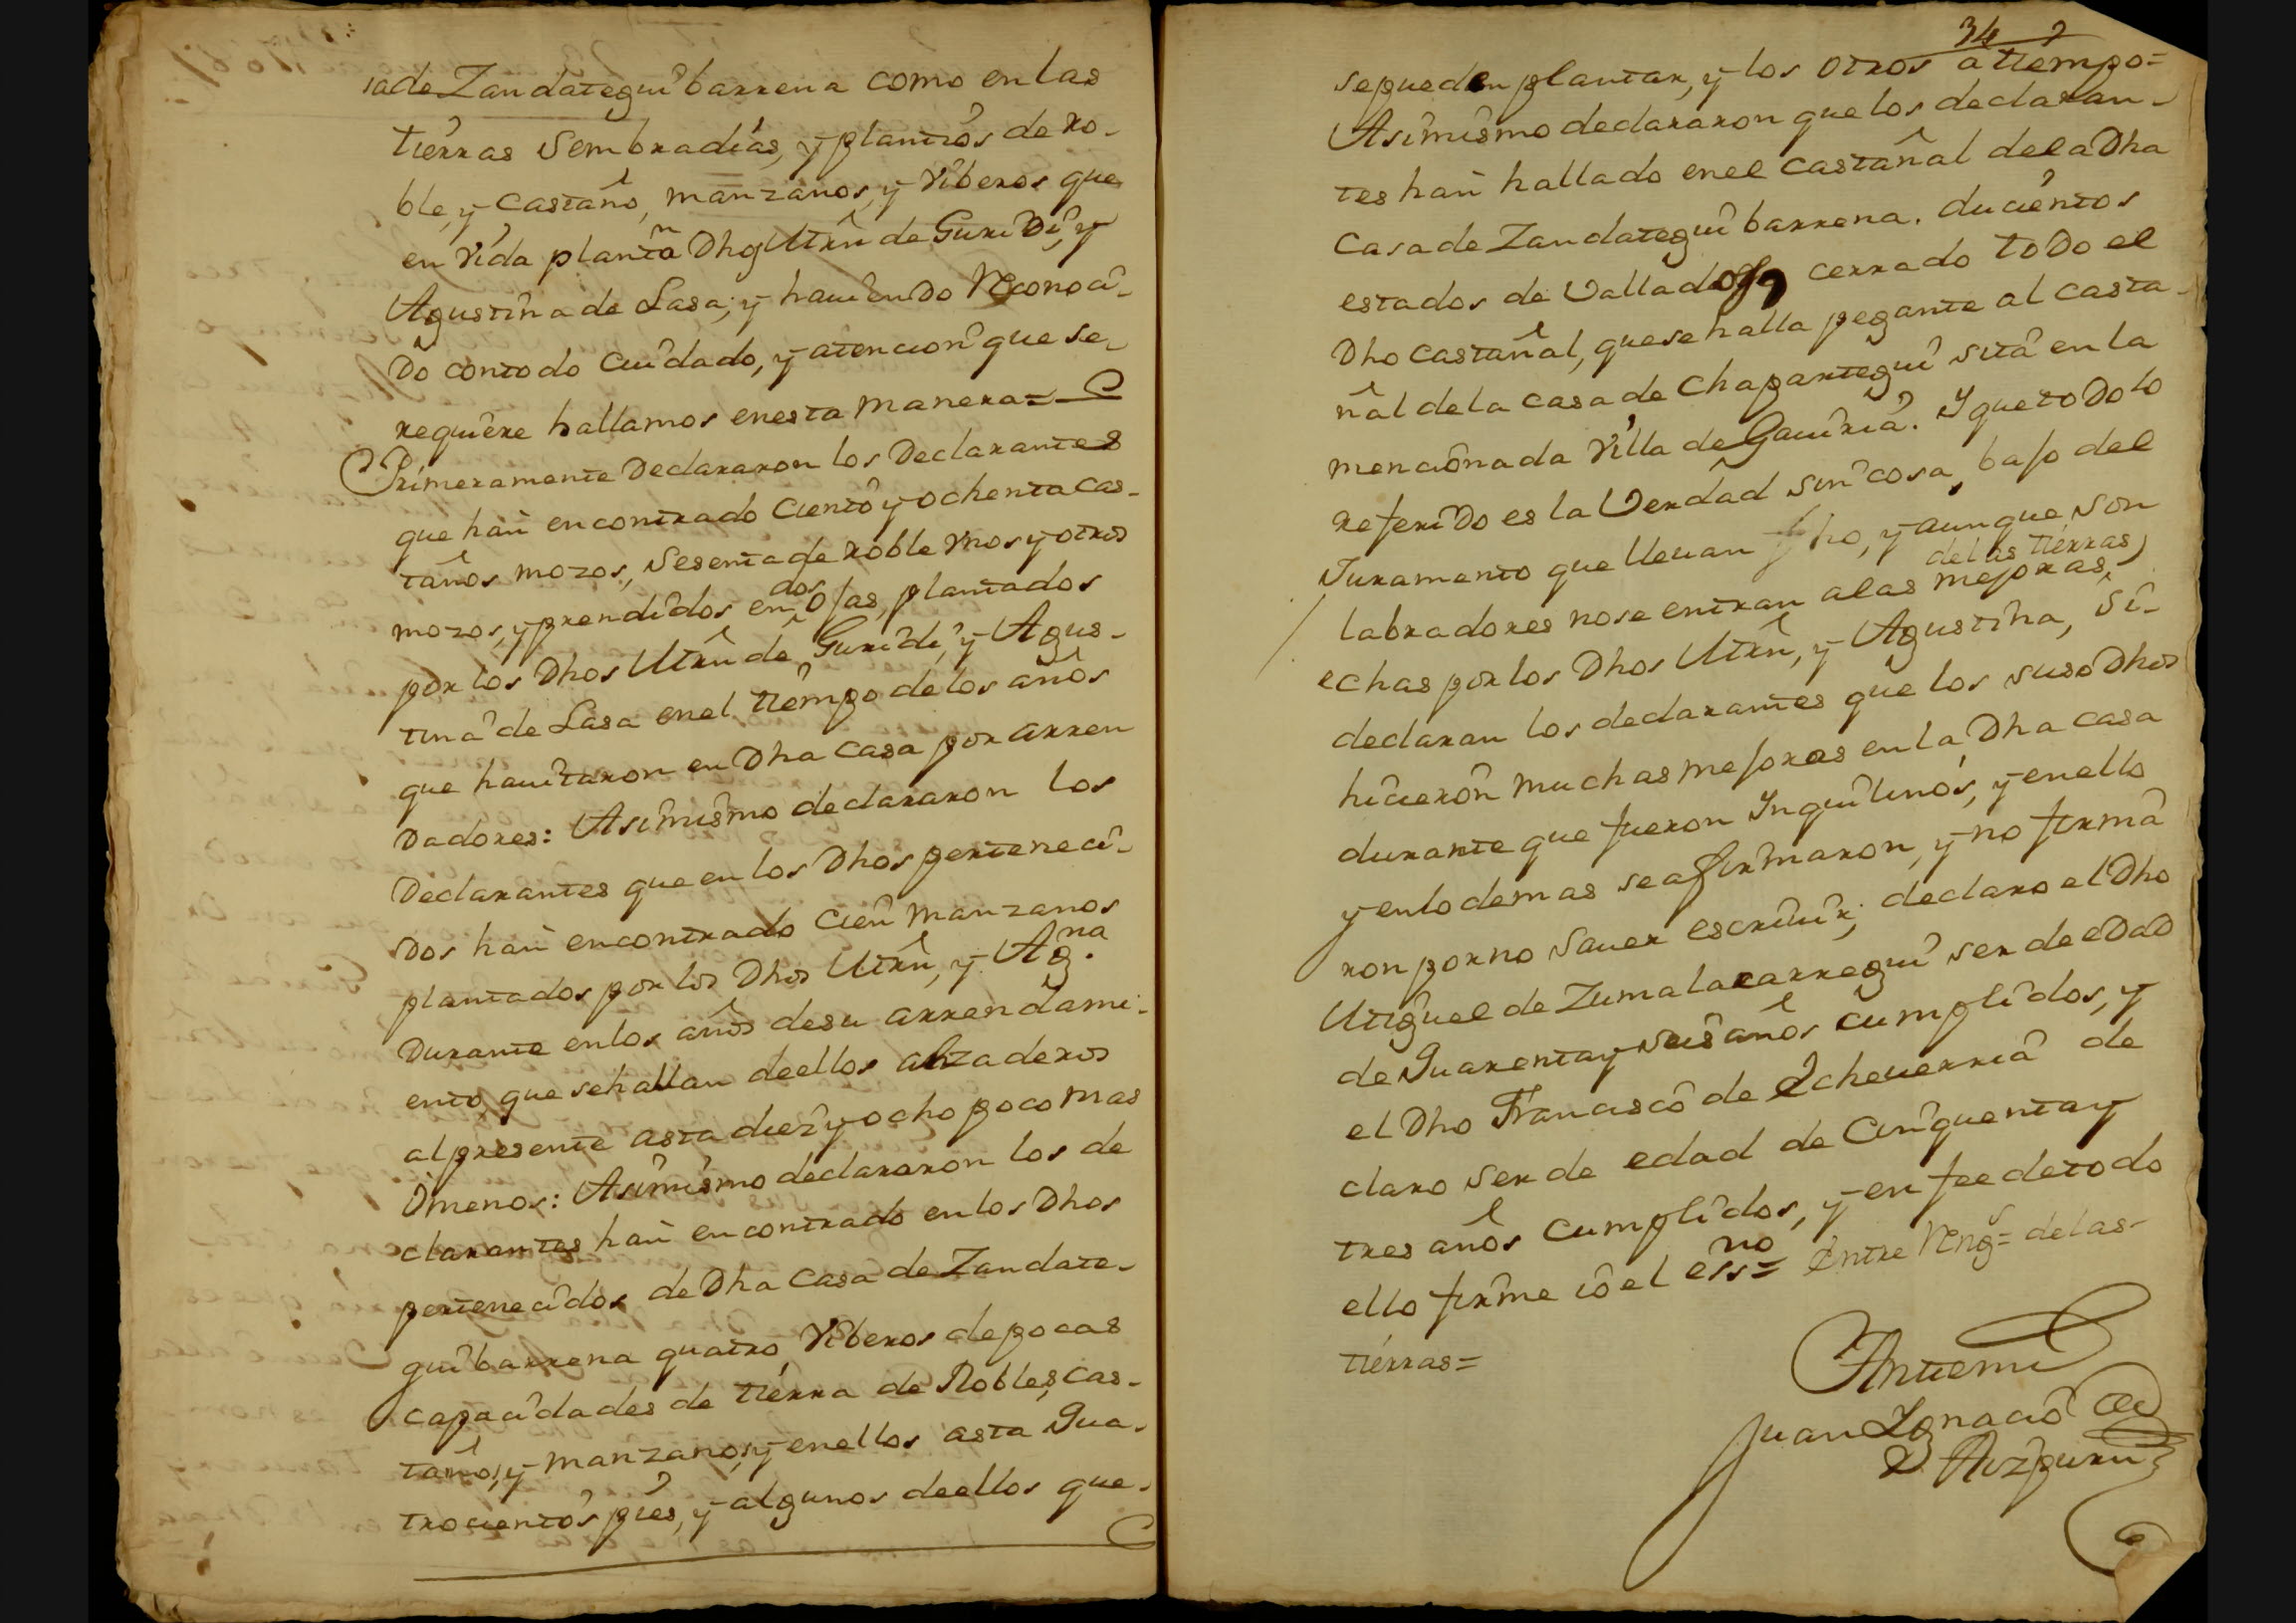 sa de Zandategui barrena como en las
tierras sembradias, y plantios de ro-
ble, y castaño, manzanos, y viberos que
en vida planto Dho Mrn de Guridi, y
Agustina de Lasa; y hauiendo Reconoci-
do con todo cuidado, y atencion que se
requiere hallamos en esta manera=
Primeramente Declararon los Declarantes
que han encontrado ciento y ochenta cas-
taños mozos, sesenta de roble vnos y otros
mozos, y prendidos en dos ojas, plantados
por los Dhos Mrn de Guridi, y Agus-
tina de Lasa en el tiempo de los años
que hauitaron en Dha casa por arren
dadores: Asimismo declararon los
Declarantes que en los Dhos perteneci-
dos han encontrado cien manzanos
plantados por los Dhos Mrn, y Ag.na
Durante en los años de su arrendami-
ento, que se hallan de ellos alzaderos
al presente asta diez y ocho poco mas
o menos: Asimismo declararon los de
clarantes han encontrado en los Dhos
pertenecidos de Dha casa de Zandate-
gui barrena quatro viberos de pocas
capacidades de tierra de Robles, cas-
taño, y manzano, y en ellos asta qua-
trocientos pies, y algunos de ellos que
34
se pueden plantar, y los otros a tiempo=
Asimismo declararon que los declaran-
tes han hallado en el castañal de la Dha
casa de Zandategui barrena. ducientos
estados de Vallados, cerrado todo el
Dho castañal, que se halla pegante al casta-
ñal de la casa de Chapartegui sita en la
mencionada villa de Gauiria. Y que todo lo
referido es la Verdad sin cosa, bajo del
Juramento que lleuan fho, y aunque son
de las tierras
labradores no se entran a las mejoras
echas por los Dhos Mrn, y Agustina, si-
declaran los declarantes que los susoDhos
hicieron muchas mejoras en la Dha casa
durante que fueron Inquilinos, y en ello
y en lo demas se afirmaron, y no firma
ron por no sauer escriuir; declaro el Dho
Miguel de Zumalacarregui ser de edad
de quarenta y seis años cumplidos, y
el Dho Francisco de Echeuerria de
claro ser de edad de cinquenta y
tres años cumplidos, y en fee de todo
ello firme io el essno= Entre Reng.s= de las-
tierras=
Antemi
Juan Ignacio
D Aizpuru